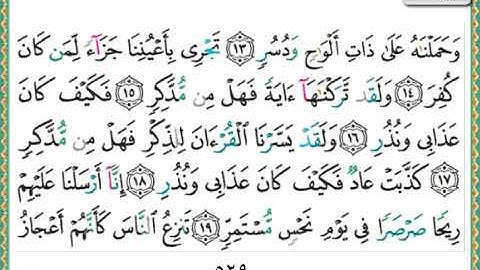 وَحَمَلْنَٰهُ عَلَىٰ ذَاتِ أَلْوَٰحٍ وَدُسُرٍ ۝١٣ تَجْرِى بِأَعْيُنِنَا جَزَآءً لِّمَن كَانَ
كُفِرَ ۝١٤ وَلَقَد تَّرَكْنَٰهَآ ءَايَةً فَهَلْ مِن مُّدَّكِرٍ ۝١٥ فَكَيْفَ كَانَ
عَذَابِى وَنُذُرِ ۝١٦ وَلَقَدْ يَسَّرْنَا ٱلْقُرْءَانَ لِلذِّكْرِ فَهَلْ مِن مُّدَّكِرٍ
۝١٧ كَذَّبَتْ عَادٌ فَكَيْفَ كَانَ عَذَابِى وَنُذُرِ ۝١٨ إِنَّآ أَرْسَلْنَا عَلَيْهِمْ
رِيحًا صَرْصَرًا فِى يَوْمِ نَحْسٍ مُّسْتَمِرٍّ ۝١٩ تَنزِعُ ٱلنَّاسَ كَأَنَّهُمْ أَعْجَازُ
٥٢٩